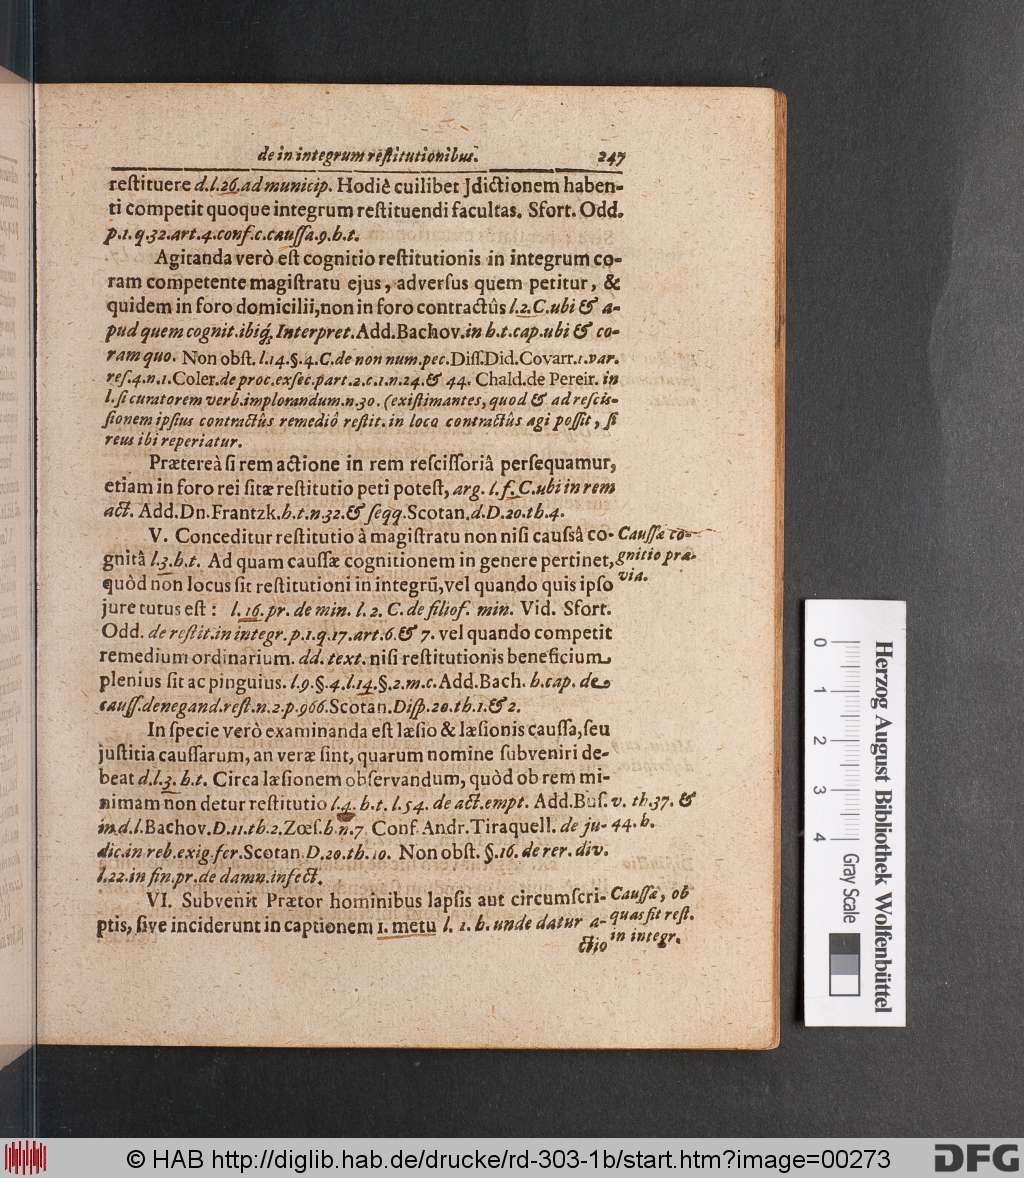 de in integrum reſtitutionibus. 247
reſtituere d.l.26.ad municip. Hodiè cuilibet Jdictionem haben-
ti competit quoque integrum reſtituendi facultas. Sfort. Odd.
p.1.q.32.art.4.conf.c.cauſſa.9.h.t.
Agitanda verò eſt cognitio reſtitutionis in integrum co-
ram competente magiſtratu ejus, adverſus quem petitur, &
quidem in foro domicilii, non in foro contractûs l.2.C.ubi & a-
pud quem cognit.ibiq́. Interpret. Add.Bachov.in h.t.cap.ubi & co-
ram quo. Non obſt. l.14.§.4.C.de non num.pec. Diſſ.Did.Covarr.1.var.
reſ.4.n.1.Coler.de proc.exſec.part.2.c.1.n.24.& 44. Chald.de Pereir. in
l.ſi curatorem verb.implorandum.n.30. (exiſtimantes, quod & ad reſciſ-
ſionem ipſius contractûs remediô reſtit. in loco contractûs agi poſſit, ſi
reus ibi reperiatur.
Prætereà ſi rem actione in rem reſciſſoriâ perſequamur,
etiam in foro rei ſitæ reſtitutio peti poteſt, arg. l.f.C.ubi in rem
act. Add.Dn.Frantzk.h.t.n.32.& ſeqq.Scotan.d.D.20.th.4.
V. Conceditur reſtitutio à magiſtratu non niſi cauſsâ co-
gnitâ l.3.h.t. Ad quam cauſſæ cognitionem in genere pertinet,
quòd non locus ſit reſtitutioni in integrũ, vel quando quis ipſo
jure tutus eſt : l. 16. pr. de min. l. 2. C. de filiof. min. Vid. Sfort.
Odd. de reſtit.in integr.p.1.q.17.art.6.& 7. vel quando competit
remedium ordinarium. dd. text. niſi reſtitutionis beneficium
plenius ſit ac pinguius. l.9.§.4.l.14.§.2.m.c.Add.Bach. h.cap. de
cauſſ.denegand.reſt.n.2.p.966.Scotan.Diſp.20.th.1.& 2.
Cauſſæ co-
gnitio præ-
via.
In ſpecie verò examinanda eſt læſio & læſionis cauſſa, ſeu
juſtitia cauſſarum, an veræ ſint, quarum nomine ſubveniri de-
beat d.l.3.h.t. Circa læſionem obſervandum, quòd ob rem mi-
nimam non detur reſtitutio l.4.h.t. l.54. de act.empt. Add.Buſ. v. th.37. &
in.d.l.Bachov.D.11.th.2.Zœſ.h.n.7. Conf. Andr.Tiraquell. de ju- 44. h.
dic.in reb.exig.fer.Scotan.D.20.th.10. Non obſt. §.16. de rer. div.
l.22.in fin.pr.de damn.infect.
VI. Subvenit Prætor hominibus lapſis aut circumſcri-
ptis, ſive inciderunt in captionem 1. metu l. 1. h. unde datur a-
ctio
Cauſſæ, ob
quas fit reſt.
in integr.
Herzog August Bibliothek Wolfenbüttel
0 1 2 3 4 Gray Scale
© HAB http://diglib.hab.de/drucke/rd-303-1b/start.htm?image=00273
DFG